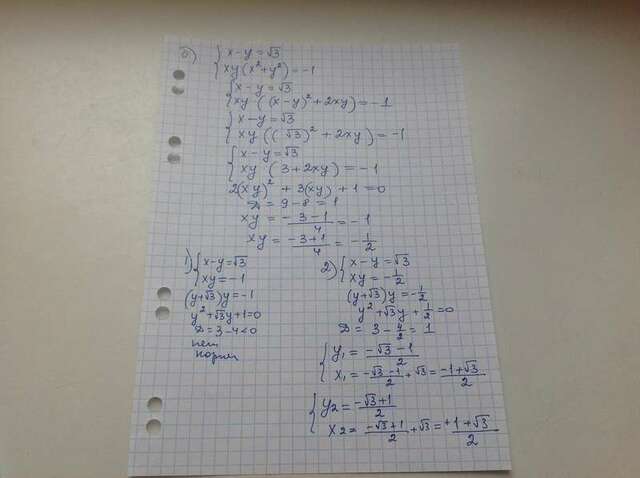 б) { x - y = √3
xy(x² + y²) = -1
{ x - y = √3
xy ((x - y)² + 2xy) = -1
{ x - y = √3
xy ((√3)² + 2xy) = -1
{ x - y = √3
xy (3 + 2xy) = -1
2(xy)² + 3(xy) + 1 = 0
D = 9 - 8 = 1
xy = (-3-1)/4 = -1
xy = (-3+1)/4 = -1/2
1) { x - y = √3
xy = -1
(y+√3)y = -1
y² + √3y + 1 = 0
D = 3 - 4 < 0
нет
корней
2) { x - y = √3
xy = -1/2
(y+√3)y = -1/2
y² + √3y + 1/2 = 0
D = 3 - 4/2 = 1
{ y₁ = (-√3-1)/2
x₁ = (-√3-1)/2 + √3 = (-1+√3)/2
{ y2 = (-√3+1)/2
x2 = (-√3+1)/2 + √3 = (+1+√3)/2